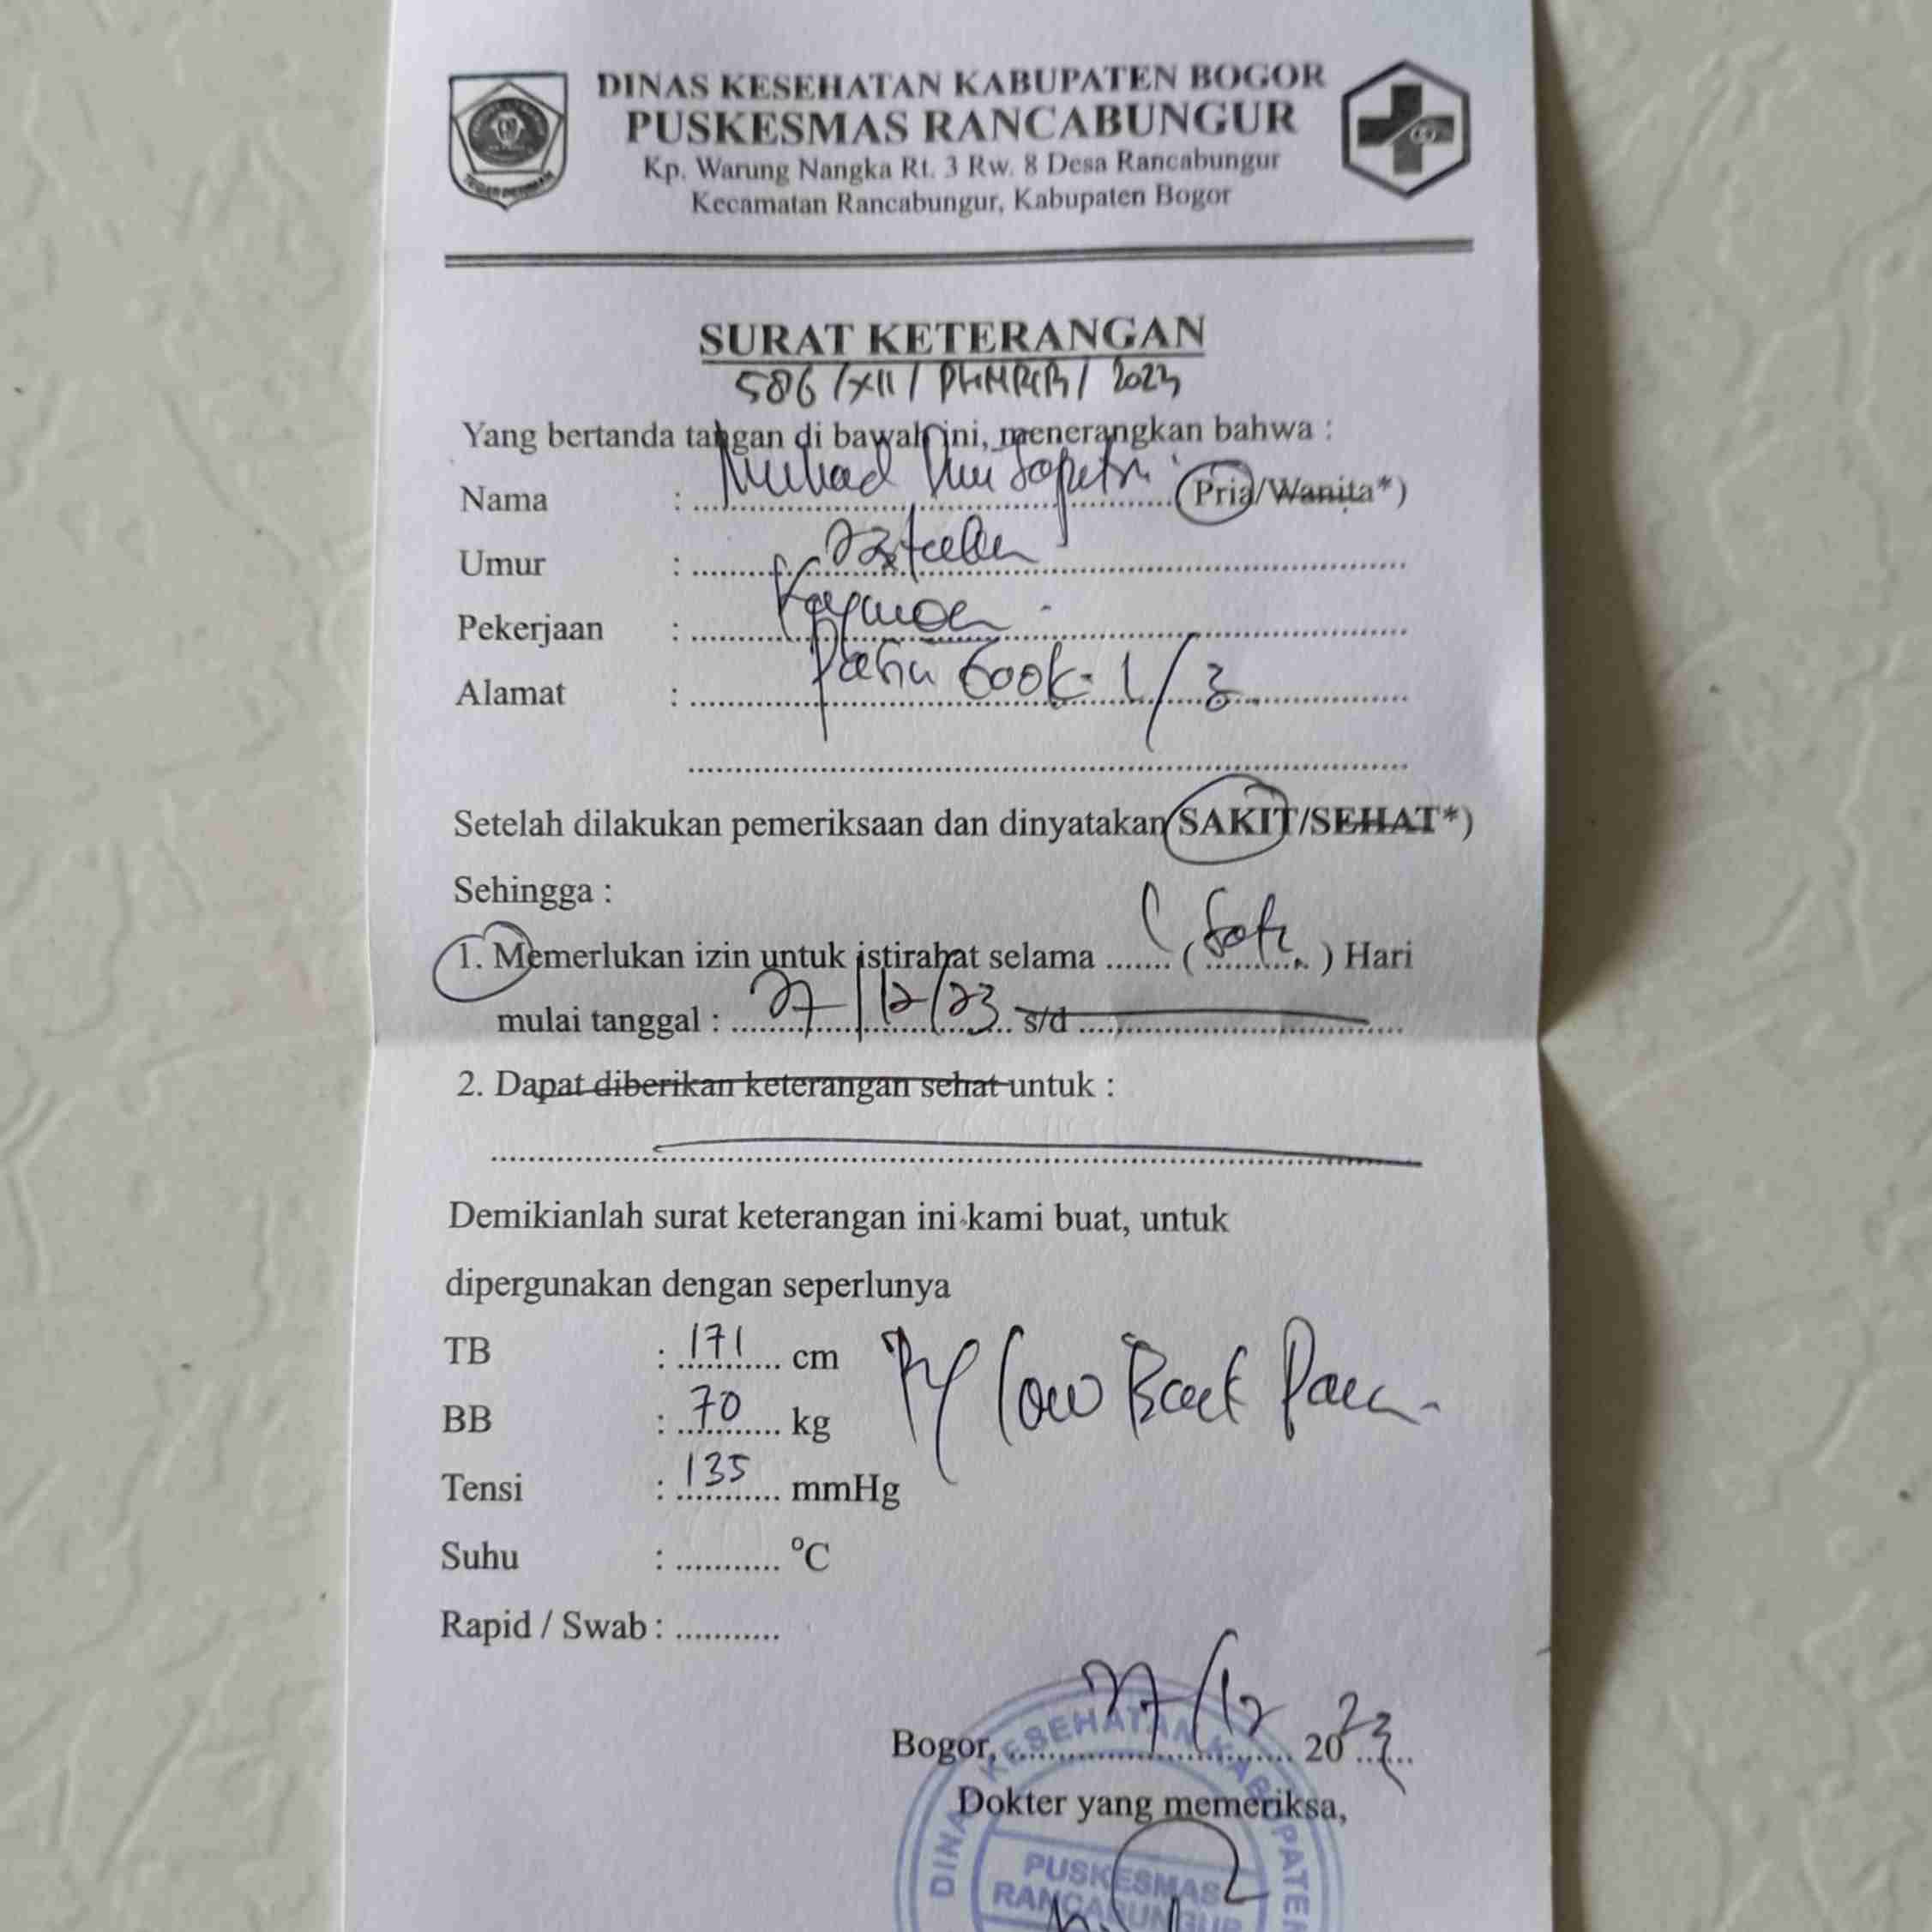 DINAS KESEHATAN KABUPATEN BOGOR
PUSKESMAS RANCABUNGUR
Kp. Warung Nangka Rt. 3 Rw. 8 Desa Rancabungur
Kecamatan Rancabungur, Kabupaten Bogor
SURAT KETERANGAN
586 /XII / / 2023
Yang bertanda tangan di bawah ini, menerangkan bahwa :
Nama : Pria/Wanita*)
Umur : 23 tahun
Pekerjaan :
Alamat : 1/3
Setelah dilakukan pemeriksaan dan dinyatakan SAKIT/SEHAT*)
Sehingga :
1. Memerlukan izin untuk istirahat selama 1 ( Satu ) Hari
mulai tanggal : 27/12/23 s/d
2. Dapat diberikan keterangan sehat untuk :
Demikianlah surat keterangan ini kami buat, untuk
dipergunakan dengan seperlunya
TB : 171 cm
BB : 70 kg
Low Back Pain
Tensi : 135 mmHg
Suhu : °C
Rapid / Swab :
Bogor, 27/12 2023
Dokter yang memeriksa,
DINAS KESEHATAN KABUPATEN
PUSKESMAS
RANCABUNGUR